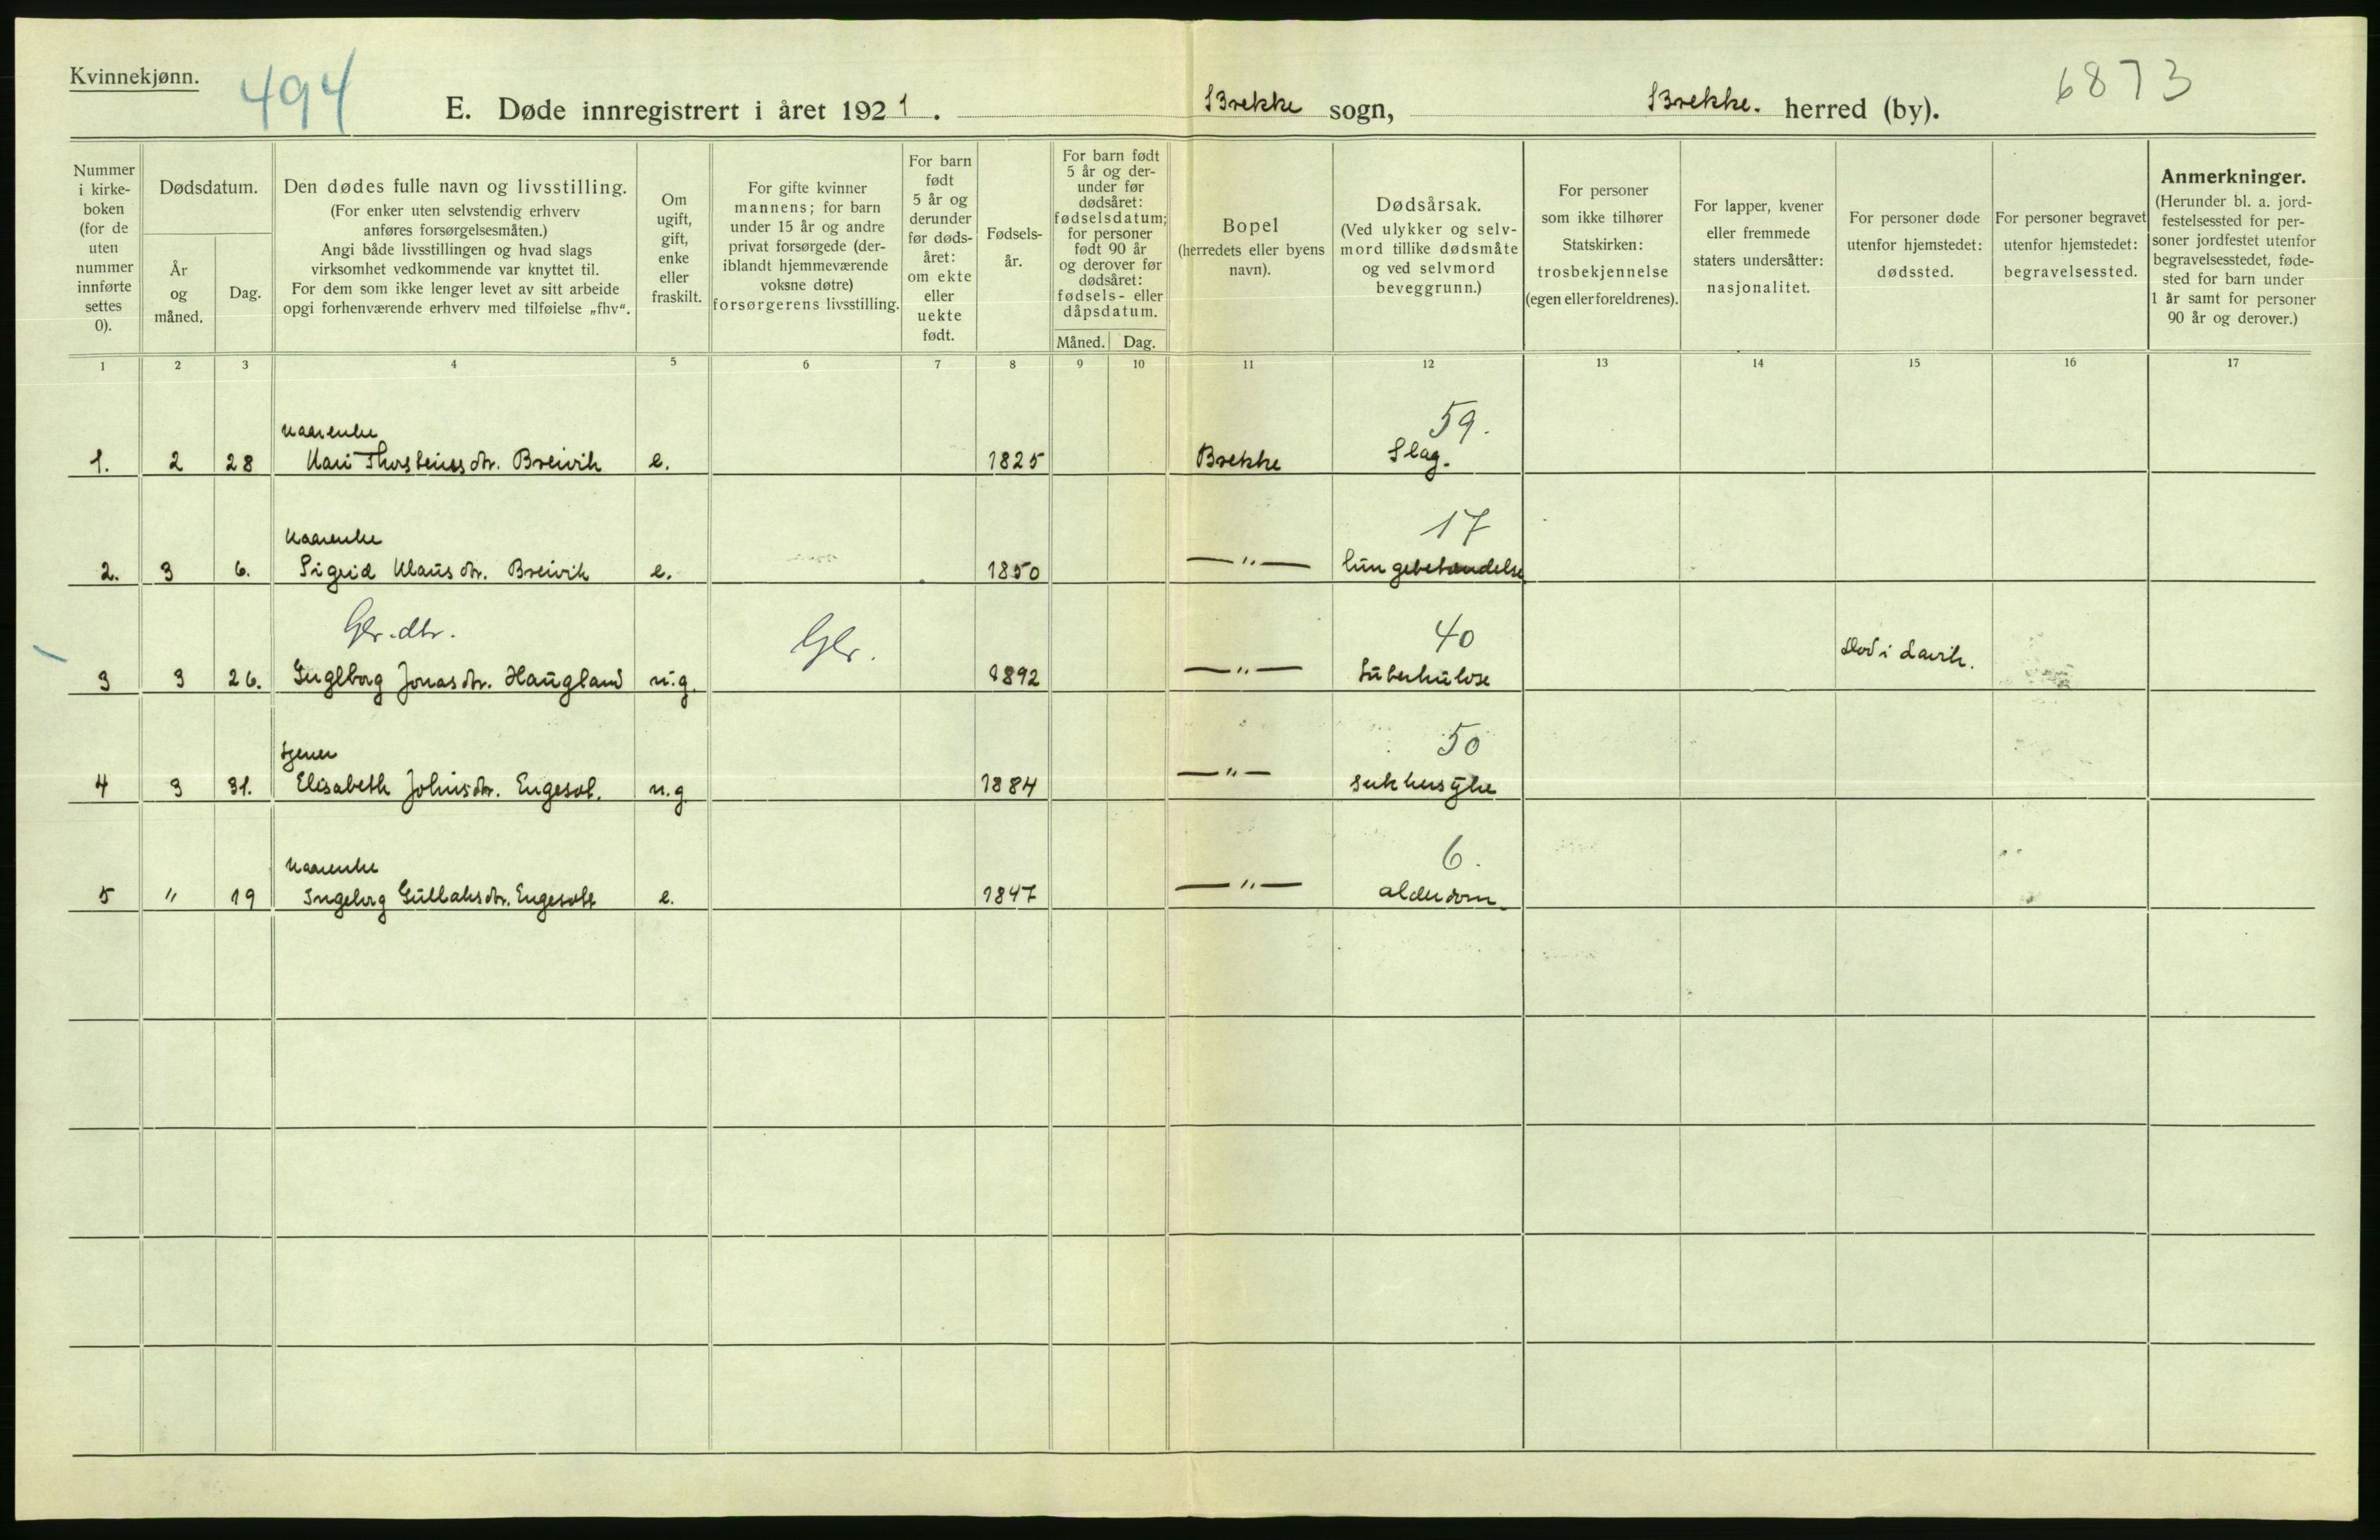 Kvinnekjønn.
494
6873
E. Døde innregistrert i året 1921. Brekke sogn, Brekke. herred (by).
Nummer i kirke-boken (for de uten nummer innførte settes 0).
Dødsdatum.
År og måned.
Dag.
Den dødes fulle navn og livsstilling.
(For enker uten selvstendig erhverv
anføres forsørgelsesmåten.)
Angi både livsstillingen og hvad slags
virksomhet vedkommende var knyttet til.
For dem som ikke lenger levet av sitt arbeide
opgi forhenværende erhverv med tilføielse „fhv“.
Om ugift, gift, enke eller fraskilt.
For gifte kvinner
mannens; for barn
under 15 år og andre
privat forsørgede (der-
iblandt hjemmeværende
voksne døtre)
forsørgerens livsstilling.
For barn født 5 år og derunder før døds-året: om ekte eller uekte født.
Fødsels-år.
For barn født
5 år og der-
under før
dødsåret:
fødselsdatum;
for personer
født 90 år
og derover før
dødsåret:
fødsels- eller
dåpsdatum.
Måned. Dag.
Bopel
(herredets eller byens
navn).
Dødsårsak.
(Ved ulykker og selv-
mord tillike dødsmåte
og ved selvmord
beveggrunn.)
For personer
som ikke tilhører
Statskirken:
trosbekjennelse
(egen eller foreldrenes).
For lapper, kvener
eller fremmede
staters undersåtter:
nasjonalitet.
For personer døde
utenfor hjemstedet:
dødssted.
For personer begravet
utenfor hjemstedet:
begravelsessted.
Anmerkninger.
(Herunder bl. a. jord-
festelsessted for per-
soner jordfestet utenfor
begravelsesstedet,føde-
sted for barn under
1 år samt for personer
90 år og derover.)
1 2 3 4 5 6 7 8 9 10 11 12 13 14 15 16 17
Kaarenke 59.
1. 2 28 Kari Thorsteinsdtr. Breivik e. 1825 Brekke Slag.
Kaarenke 17
2. 3 6. Sigrid Klausdtr. Breivik e. 1850 — " — lungebetændelse
Gbr. dtr. Gbr. 40
3 3 26. Ingeborg Jonasdtr. Haugland u.g. 1892 — " — Tuberkulose Død i Lavik.
tjener 50
4 3 31. Elisabeth Johnsdtr. Engesæt. u.g. 1884 — " — sukkersyke
Kaarenke 6.
5 " 19 Ingeborg Gullaksdtr. Engesæt e. 1847 — " — alderdom